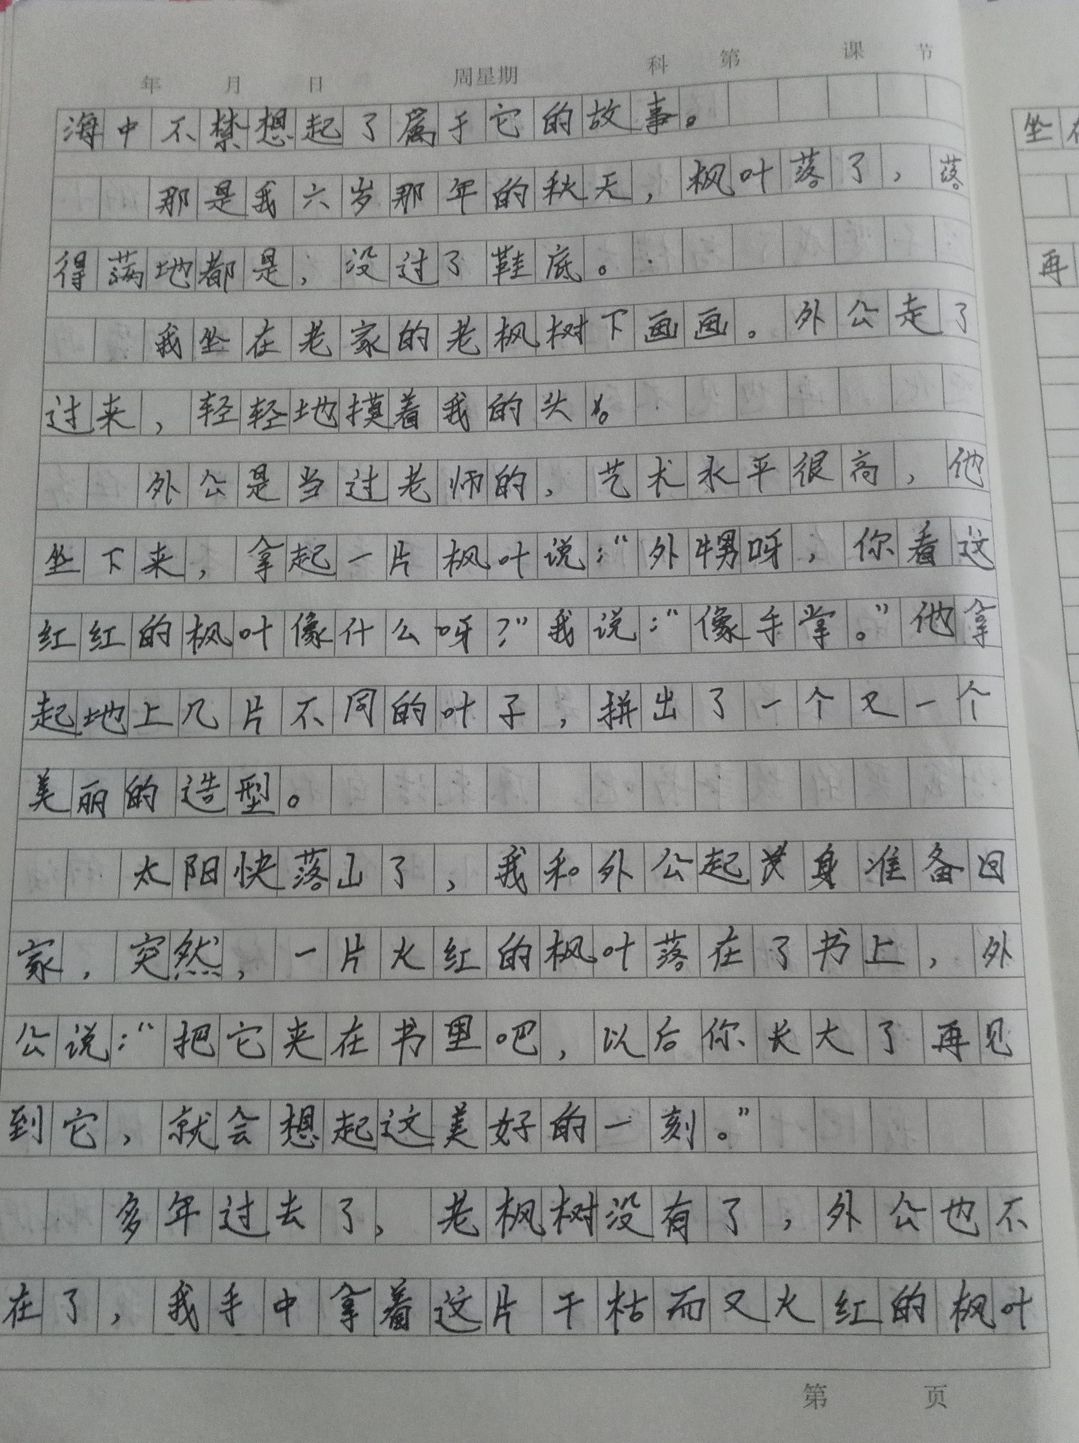 年 月 日 周星期 科 第 课 节
海中不禁想起了属于它的故事。
那是我六岁那年的秋天，枫叶落了，落
得满地都是，没过了鞋底。
我坐在老家的老枫树下画画。外公走了
过来，轻轻地摸着我的头。
外公是当过老师的，艺术水平很高，他
坐下来，拿起一片枫叶说：“外甥呀，你看这
红红的枫叶像什么呀？”我说：“像手掌。”他拿
起地上几片不同的叶子，拼出了一个又一个
美丽的造型。
太阳快落山了，我和外公起身准备回
家，突然，一片火红的枫叶落在了书上，外
公说：“把它夹在书里吧，以后你长大了再见
到它，就会想起这美好的一刻。”
多年过去了，老枫树没有了，外公也不
在了，我手中拿着这片干枯而又火红的枫叶
第 页
坐在
再